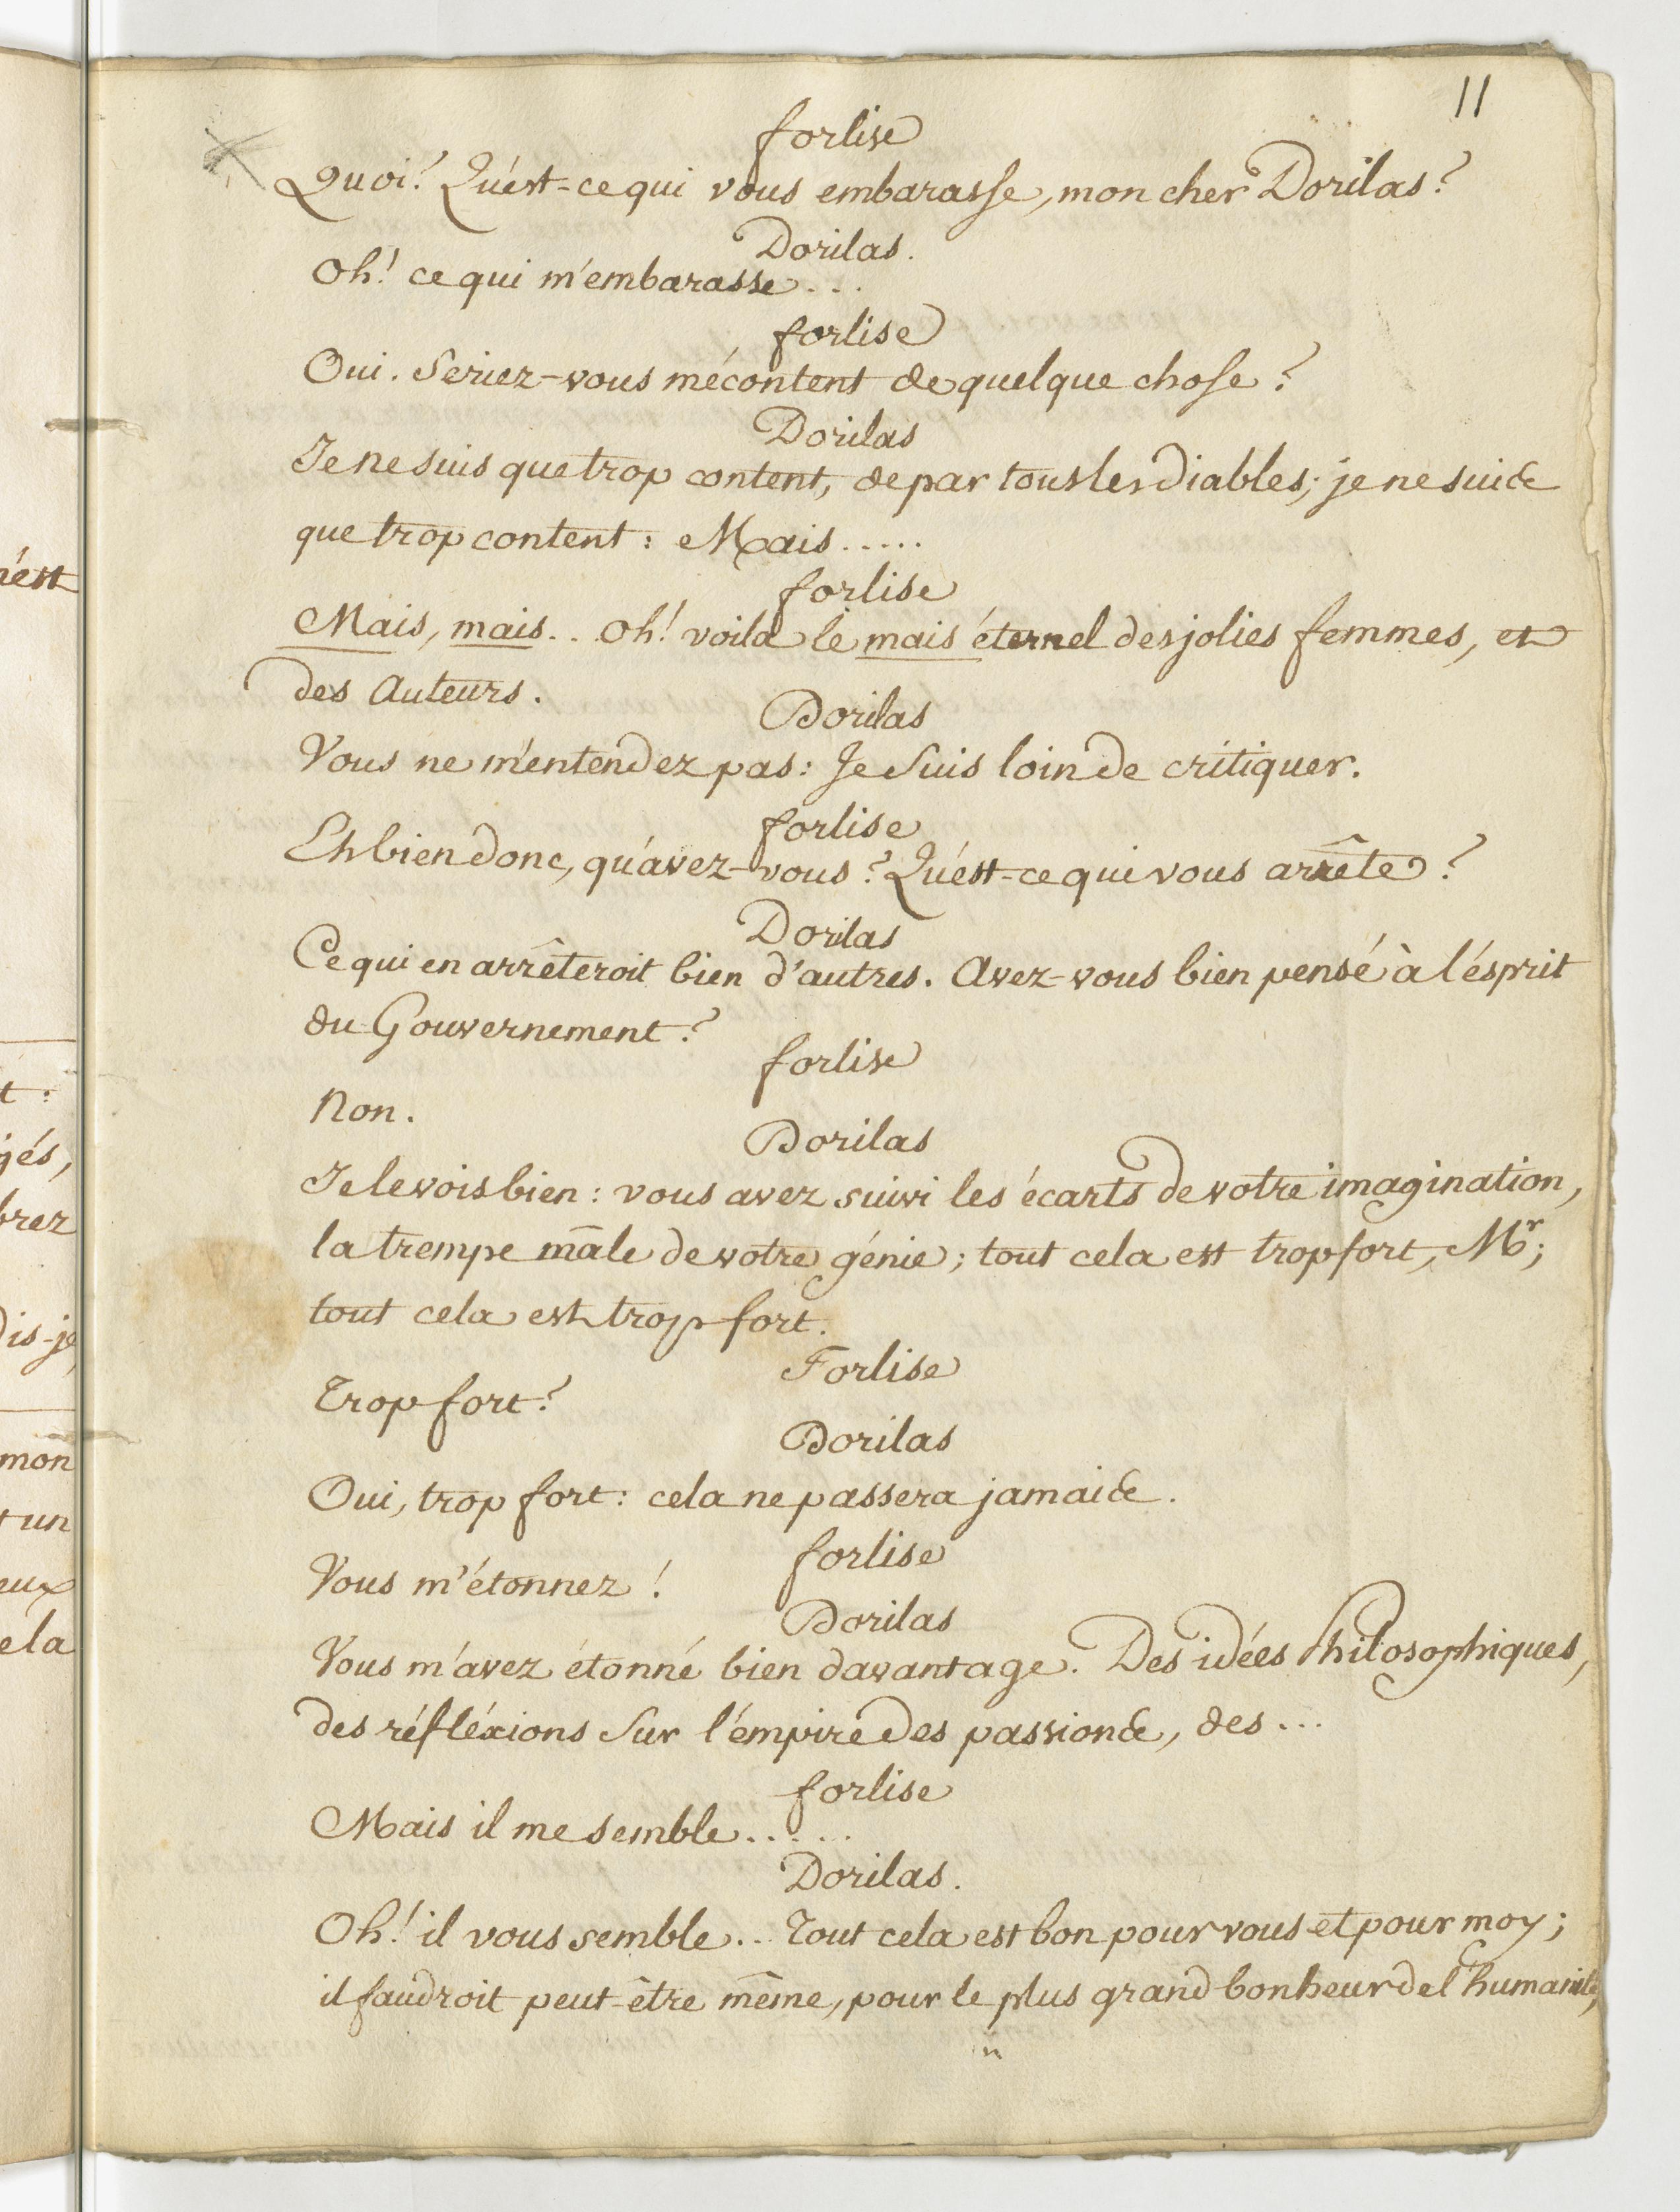 11
forlise
Quoi! Qu'est-ce qui vous embarasse, mon cher Dorilas?
Dorilas.
Oh! ce qui m'embarasse...
forlise
Oui. Seriez-vous mécontent de quelque chose?
Dorilas
Je ne suis que trop content, de par tous les Diables; je ne suis
que trop content: Mais.....
forlise
Mais, mais.. oh! voila le mais éternel des jolies femmes, et
des Auteurs.
Dorilas
Vous ne m'entendez pas: Je Suis loin de critiquer.
forlise
Eh bien donc, qu'avez-vous? Qu'est-ce qui vous arrête?
Dorilas
Ce qui en arrêteroit bien d'autres. Avez-vous bien pensé à l'ésprit
du Gouvernement?
forlise
Non.
Dorilas
Je le vois bien: vous avez suivi les écarts de votre imagination,
la trempe mâle de votre génie; tout cela est trop fort, Mr;
tout cela est trop fort.
Forlise
Trop fort?
Dorilas
Oui, trop fort: cela ne passera jamais.
forlise
Vous m'étonnez!
Dorilas
Vous m'avez étonné bien davantage. Des idées Philosophiques,
des réfléxions Sur l'émpire des passions, des...
forlise
Mais il me semble......
Dorilas.
Oh! il vous semble... Tout cela est bon pour vous et pour moy;
il faudroit peut-être même, pour le plus grand bonheur de l'humanité,
n'est
t:
gés,
brez
dis-je
mon
t un
eux
ela